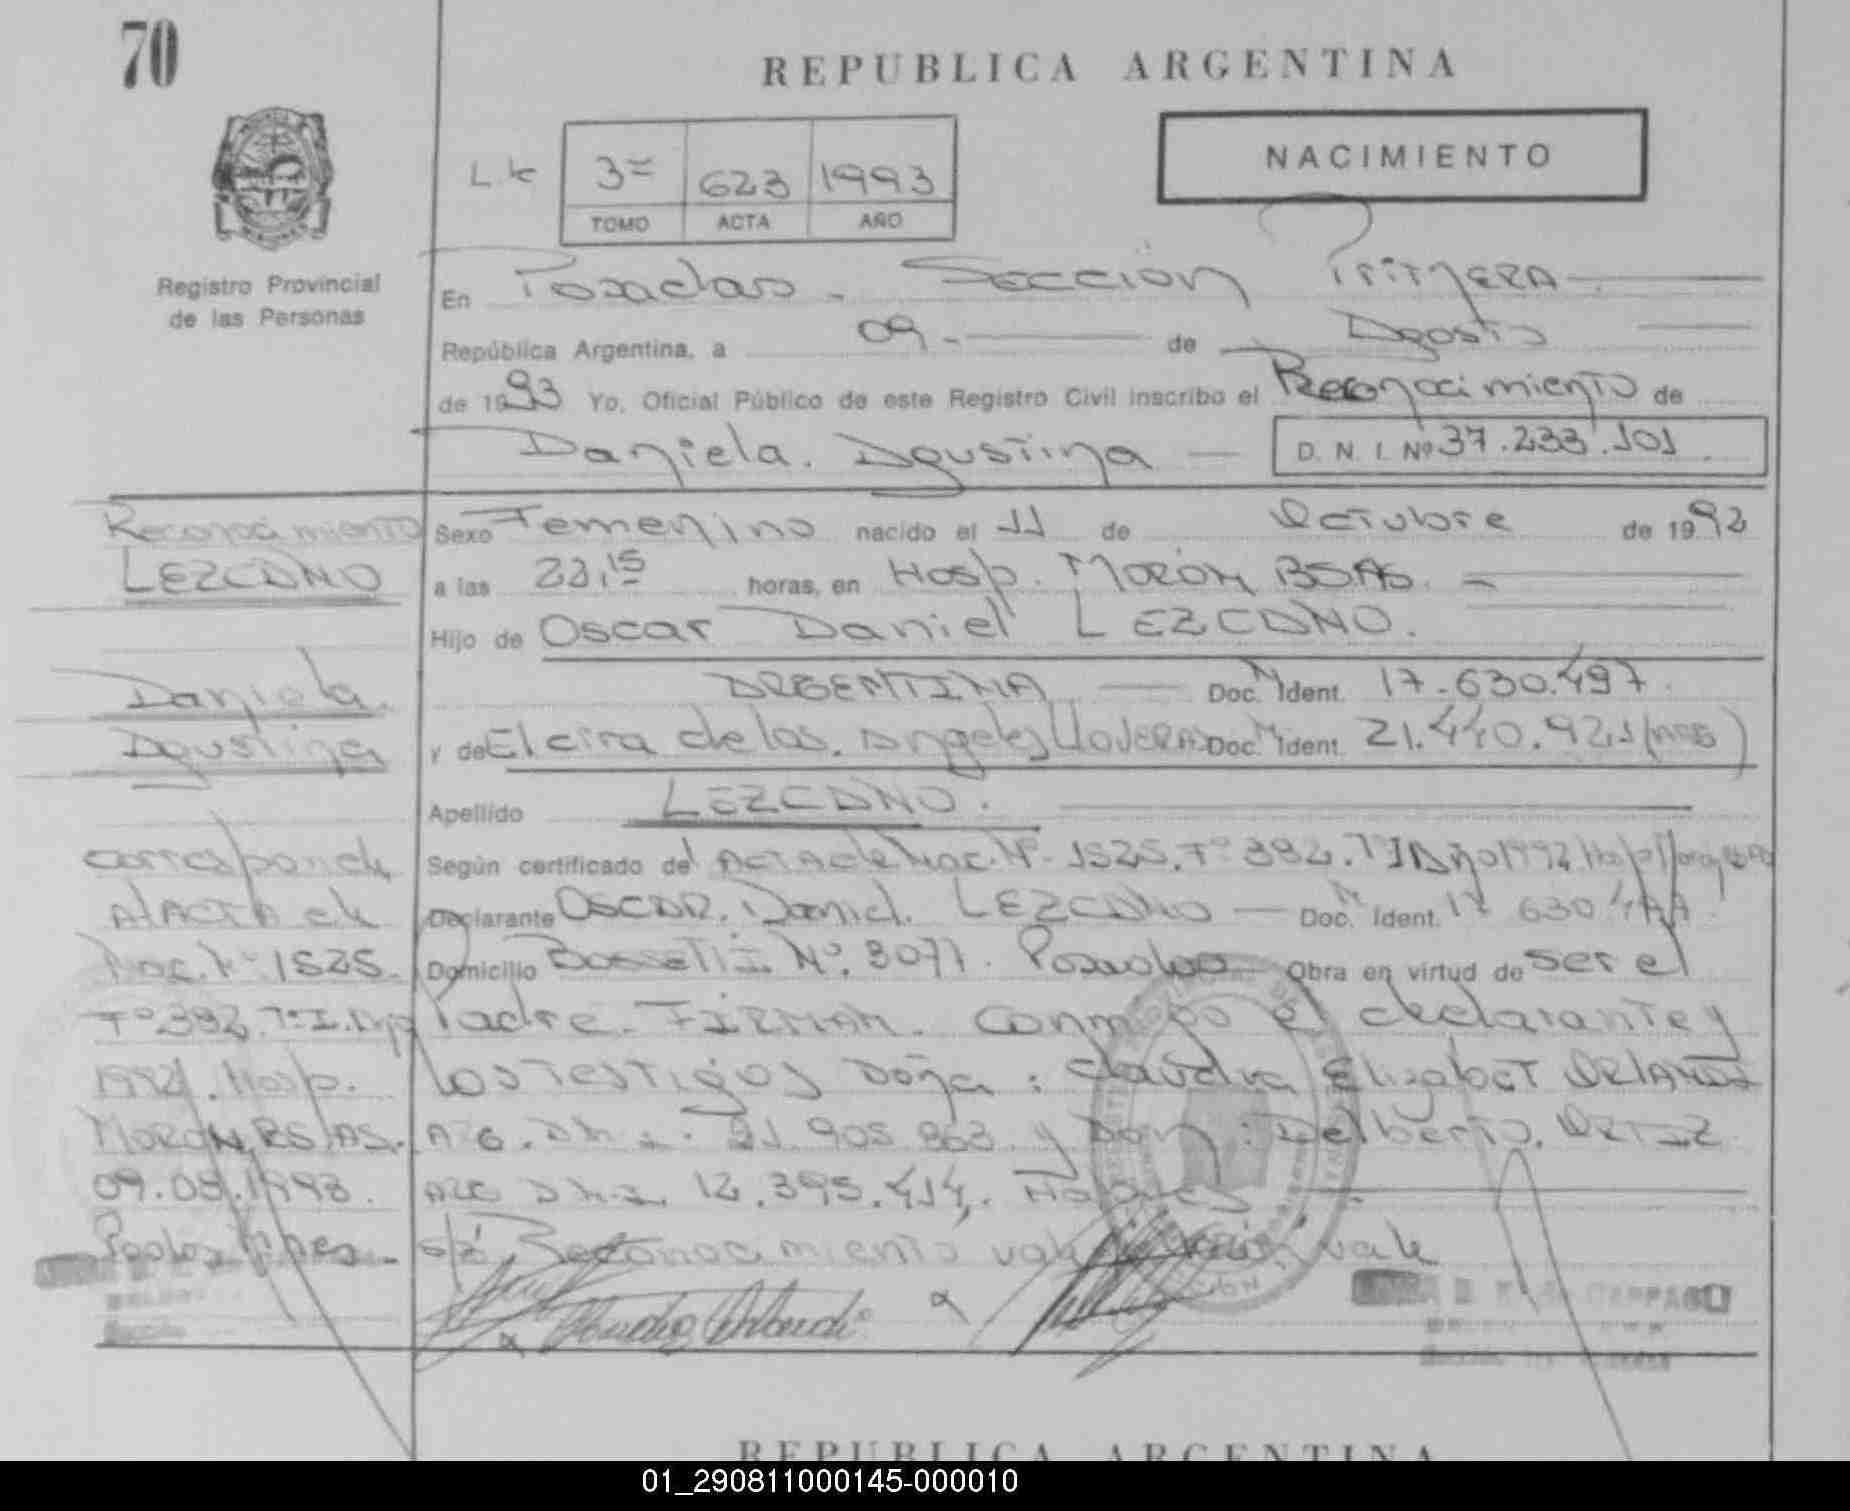 70
REPUBLICA ARGENTINA
NACIMIENTO
3ª 623 1993
TOMO ACTA AÑO
Registro Provincial
de las Personas
En Posadas - Sección Primera
República Argentina, a 09 - de Agosto
de 1993 Yo, Oficial Público de este Registro Civil inscribo el Reconocimiento de
Daniela Agustina — D. N. I. Nº 37.233.101.
Sexo Femenino nacido el 11 de Octubre de 1992
a las 23,15 horas, en Hosp. Morón BS.AS. -
Hijo de Oscar Daniel LEZCANO.
ARGENTINA — Doc. Ident. 17.630.497.
y de Elcira de los Angeles Doc. Ident. 21.440.921
Apellido LEZCANO.
Según certificado de Acta de Nac. Nº 1525. Fº 392. Tº I Año 1992 Hosp
Declarante OSCAR Daniel LEZCANO — Doc. Ident. 17 630
Domicilio Nº 3077. Posadas Obra en virtud de ser el
Padre. FIRMAN. Conmigo el declarante y
los Testigos Doña: Claudia Elizabet
D.N.I. 21.905.863 y Don: Adelberto
D.N.I. 12.395.414,
s/r Reconocimiento vale vale
Reconocimiento
LEZCANO
Daniela
Agustina
corresponde
Al ACTA de
Nac. Nº 1525.
Fº 392. Tº I. Año
1992. Hosp.
MORON, BS.AS.
09.08.1993.
REPUBLICA ARGENTINA
01_290811000145-000010